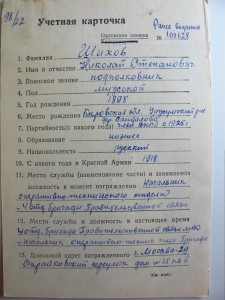 98/22
Ранее выдана
№ 109628
Учетная карточка
Орденская книжка
1. Фамилия Шихов
2. Имя и отчество Николай Степанович
3. Воинское звание подполковник
4. Пол мужской
5. Год рождения 1898
6. Место рождения Кировская обл.
7. Партийность (с какого года) член ВКП(б) с 1925 г.
8. Образование низшее
9. Национальность русский
10. С какого года в Красной Армии 1918
11. Место службы (наименование части) и занимаемая
должность в момент награждения Начальник
оперативно-технического отдела
4 отд. бригады Правительственной связи
12. Место службы и должность в настоящее время
4 отд. бригада Правительственной связи
начальник оперативно-технич. бригады
13. Домашний адрес награжденного г. Москва-29